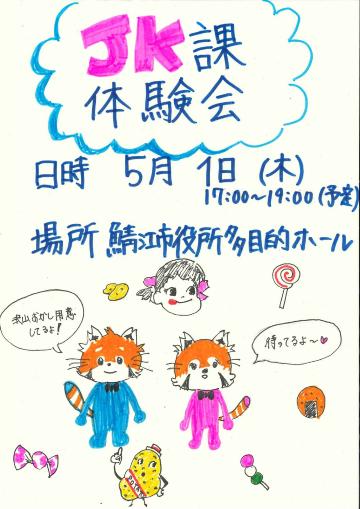 JK課
体験会
日時 5月1日(木)
17:00~19:00(予定)
場所 鯖江市役所多目的ホール
沢山おかし用意
してるよ!
待ってるよ~♥